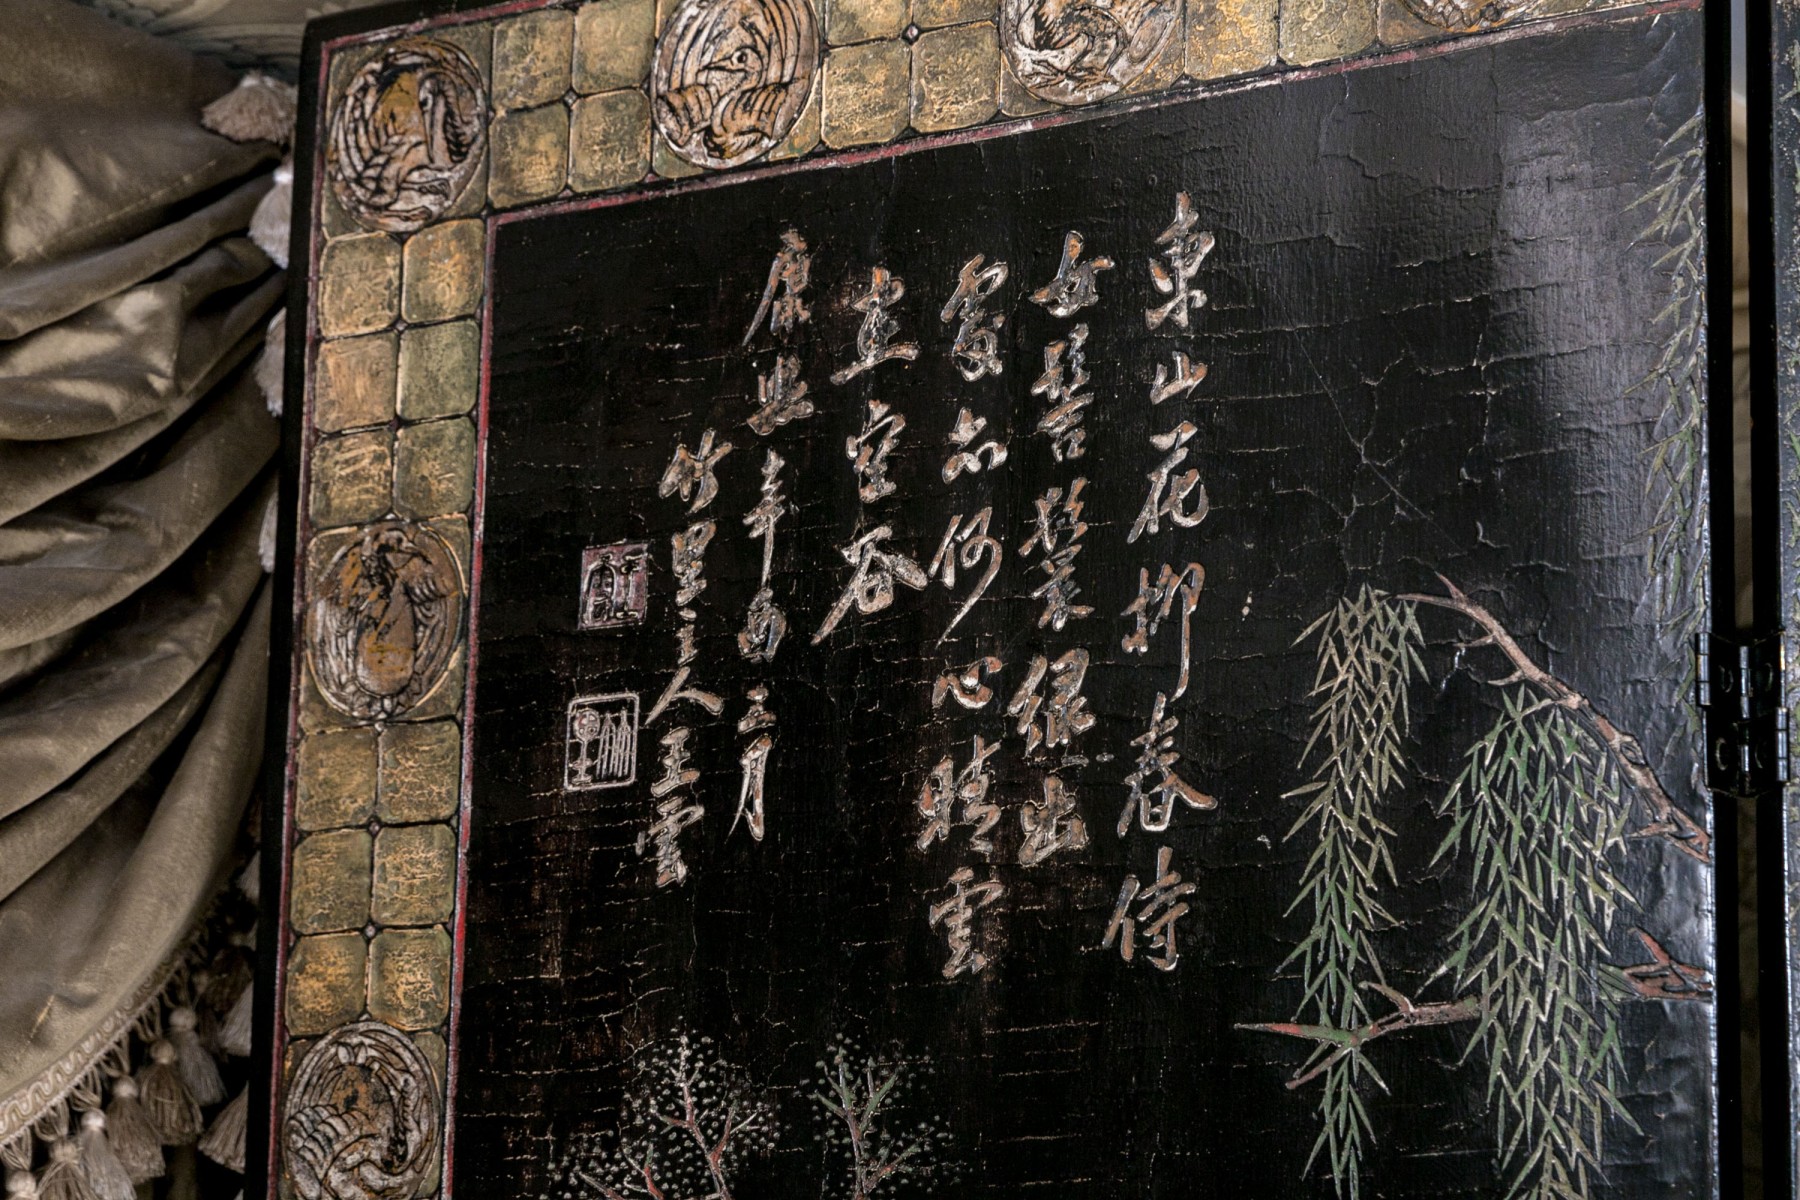 東山花柳春侍
女髻鬟綠出
處亦何心晴雲
空谷
康熙辛酉三月
竹里主人王雲